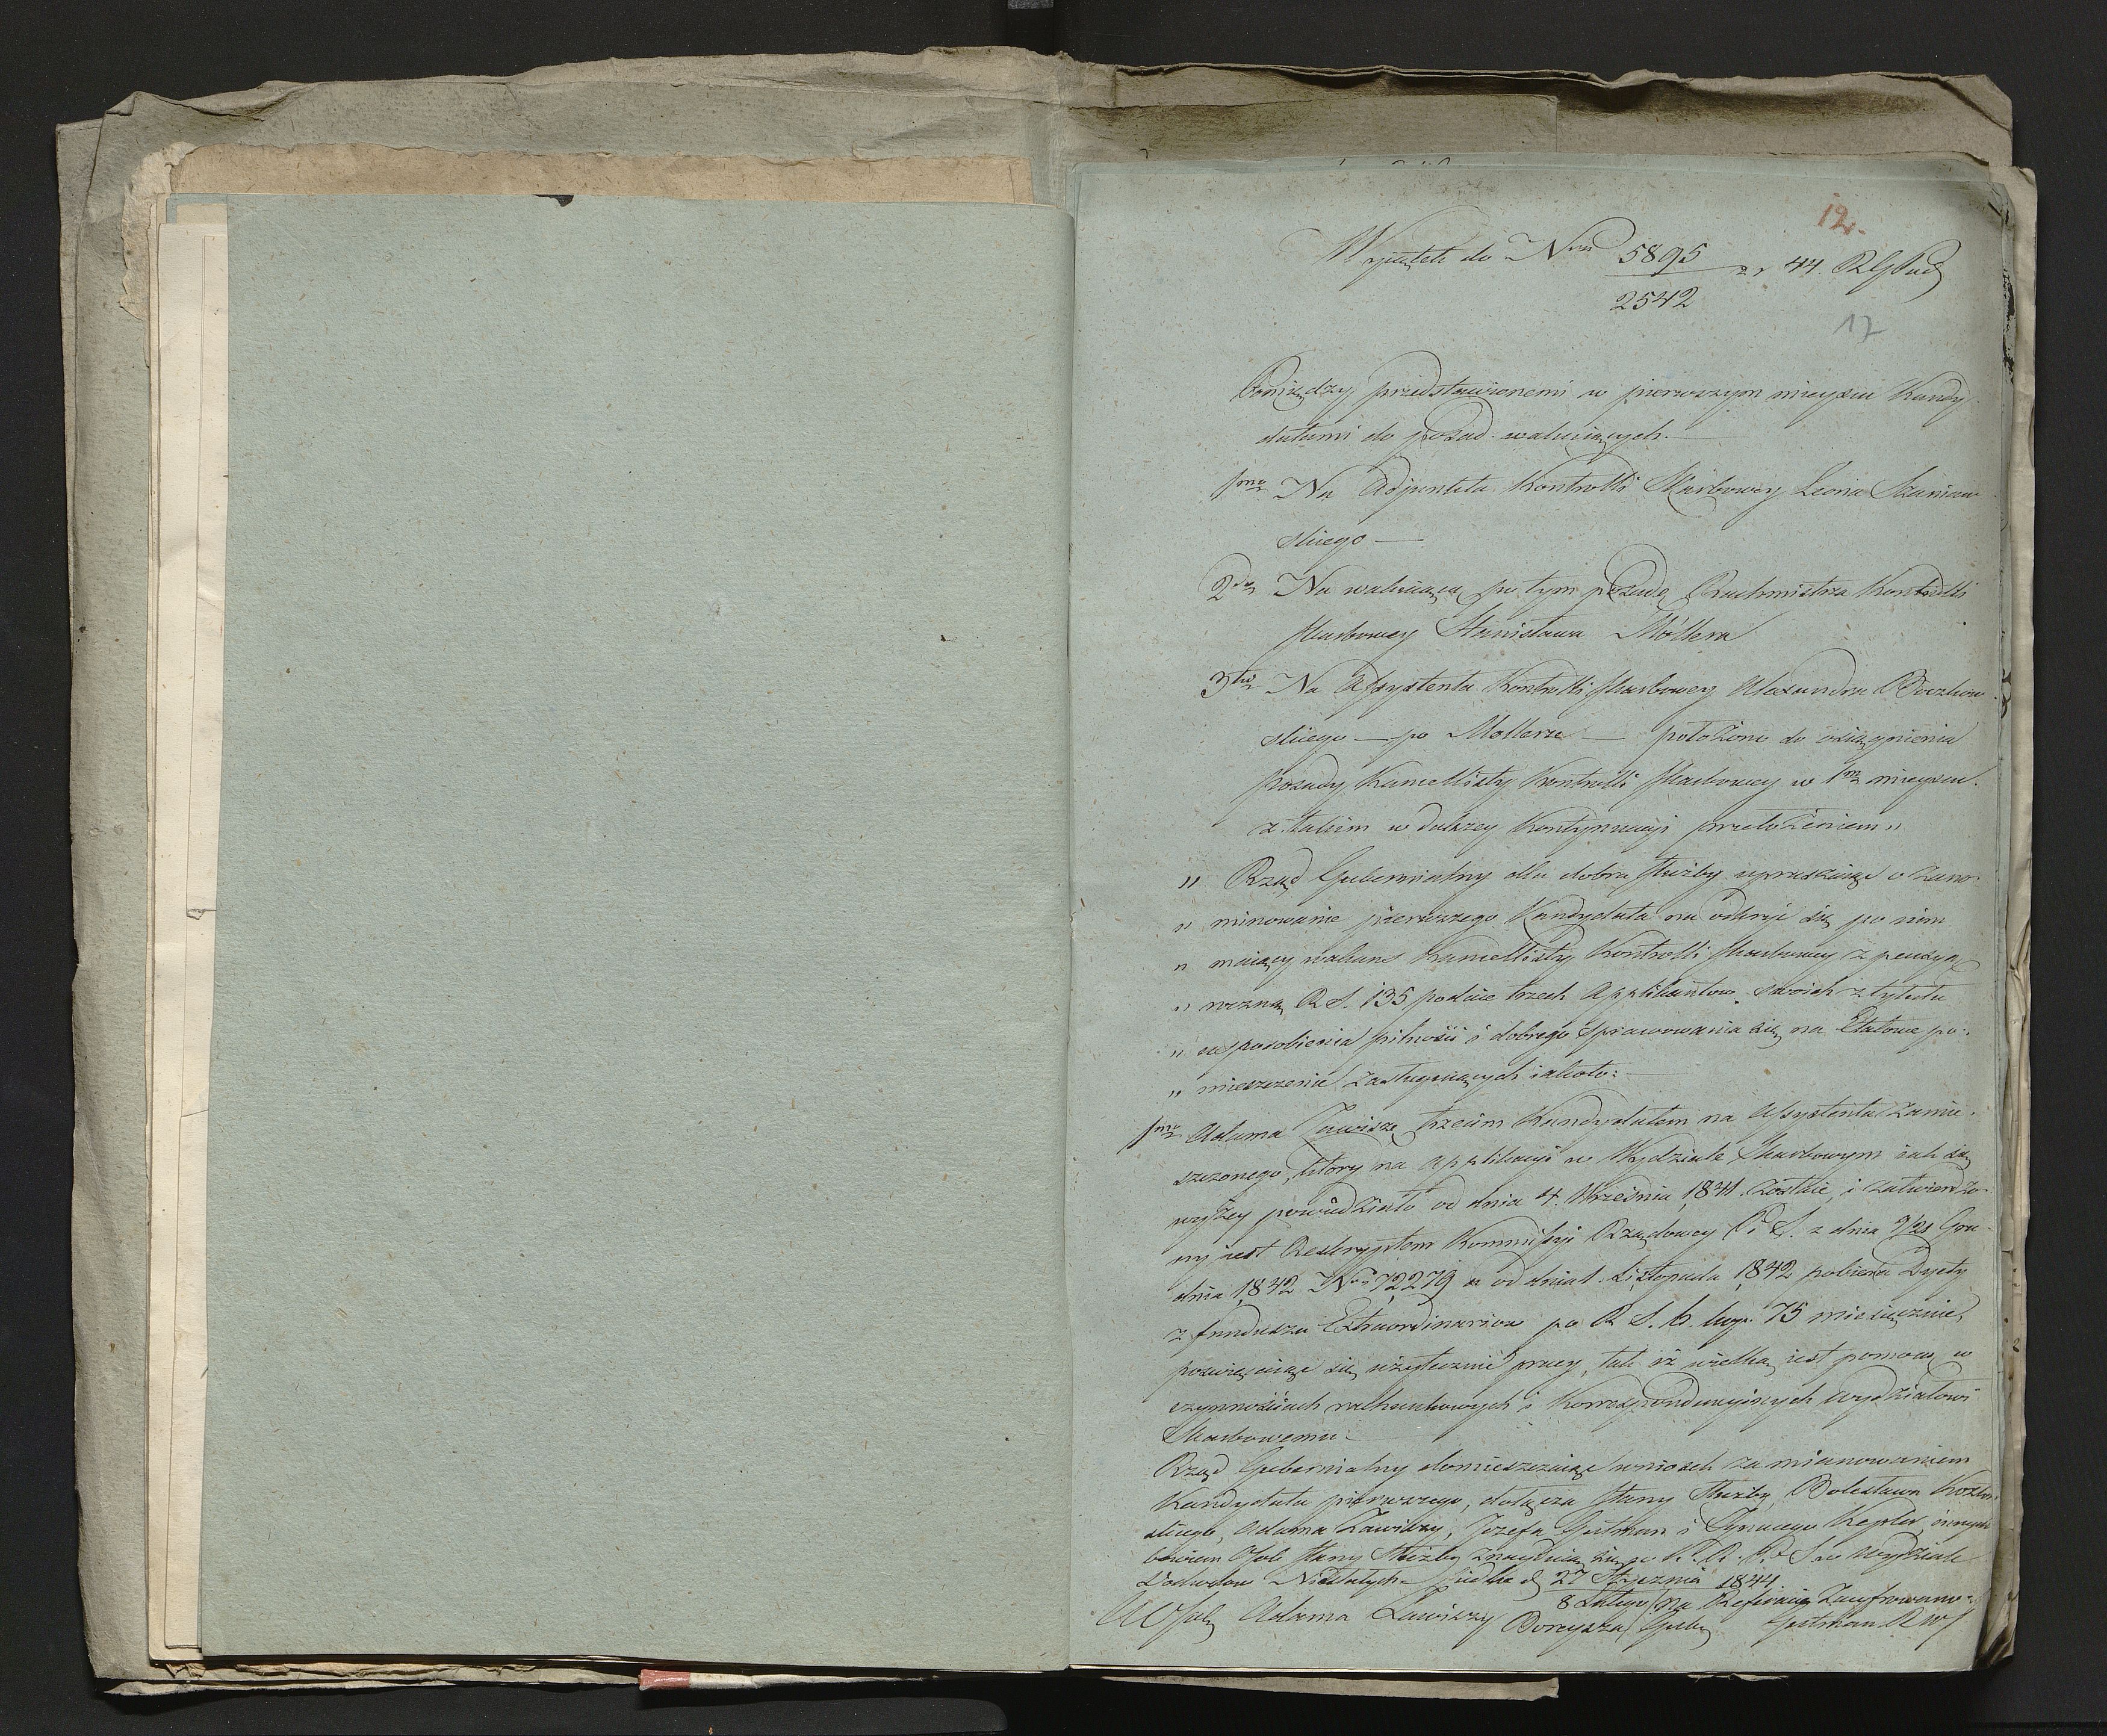 12.
Wyiątek do Nru 5895/2542 z r 44. RGPod
17
Pomiędzy przedstawionemi w pierwszym mieyscu Kandy
datami do posad wakuiących.—
1mo Na Adjunkta Kontrolli Skarbowey Leona Szaniaw
skiego —
2do Na wakuiącą po tym posadę Rachmistrza Kontrolli
Skarbowey Stanisława Möllera
3tio Na Assystenta Kontrolli Skarbowey Alexandra
skiego — po Mollerze — położono do osiągnienia
Posady Kancellisty Kontrolli Skarbowey w 1m mieyscu.
z takim w dalszey Kontynuacyi przełożeniem „
„ Rząd Gubernialny dla dobra Służby upraszaiąc o zano-
„ minowanie pierwszego Kandydata na odkryć się po nim
„ maiący wakans Kancellisty Kontrolli Skarbowey z pensyą
„ roczną R S. 135 podaie trzech Applikantow swoich z tytułu
„ usposobienia pilności i dobrego sprawowania się na Etatowe po-
„ mieszczenie zasługuiących iakoto: —
1mo Adama Zawiszę trzecim Kandydatem na Assystenta zamie-
szczonego, który na Applikacyi w Wydziale Skarbowym iak się
wyżey powiedziało od dnia 4. Września 1841. zostaie, i zatwierdzo-
ny iest Reskryptem Kommissyi Rządowey P. i S. z dnia 9/21 Gru-
dnia 1842 Nro 72279 a od dnia 1. Listopada 1842 pobiera Dyety
z funduszu Extraordinariow po R S. 6. kop. 75 miesięcznie
poswięcaiąc się użytecznie pracy, tak iż wielką iest pomocą w
czynnościach rachunkowych i Korrespondencyinych Wydziałowi
Skarbowemu.
Rząd Gubernialny domieszczaiąc wniosek za mianowaniem
Kandydata pierwszego, dołącza Stany Służby Bolesława
skiego, Adama Zawiszy, Józefa Gutman i Ignacego Kepler, innych
bowiem Osob Stany Służby znayduią się w K. R. P. i S. w Wydziale
Niestałych. Siedlce d. 27 Stycznia/8 Lutego 1844
A Ospbę Adama Zawiszy Gub. Gutman R W S